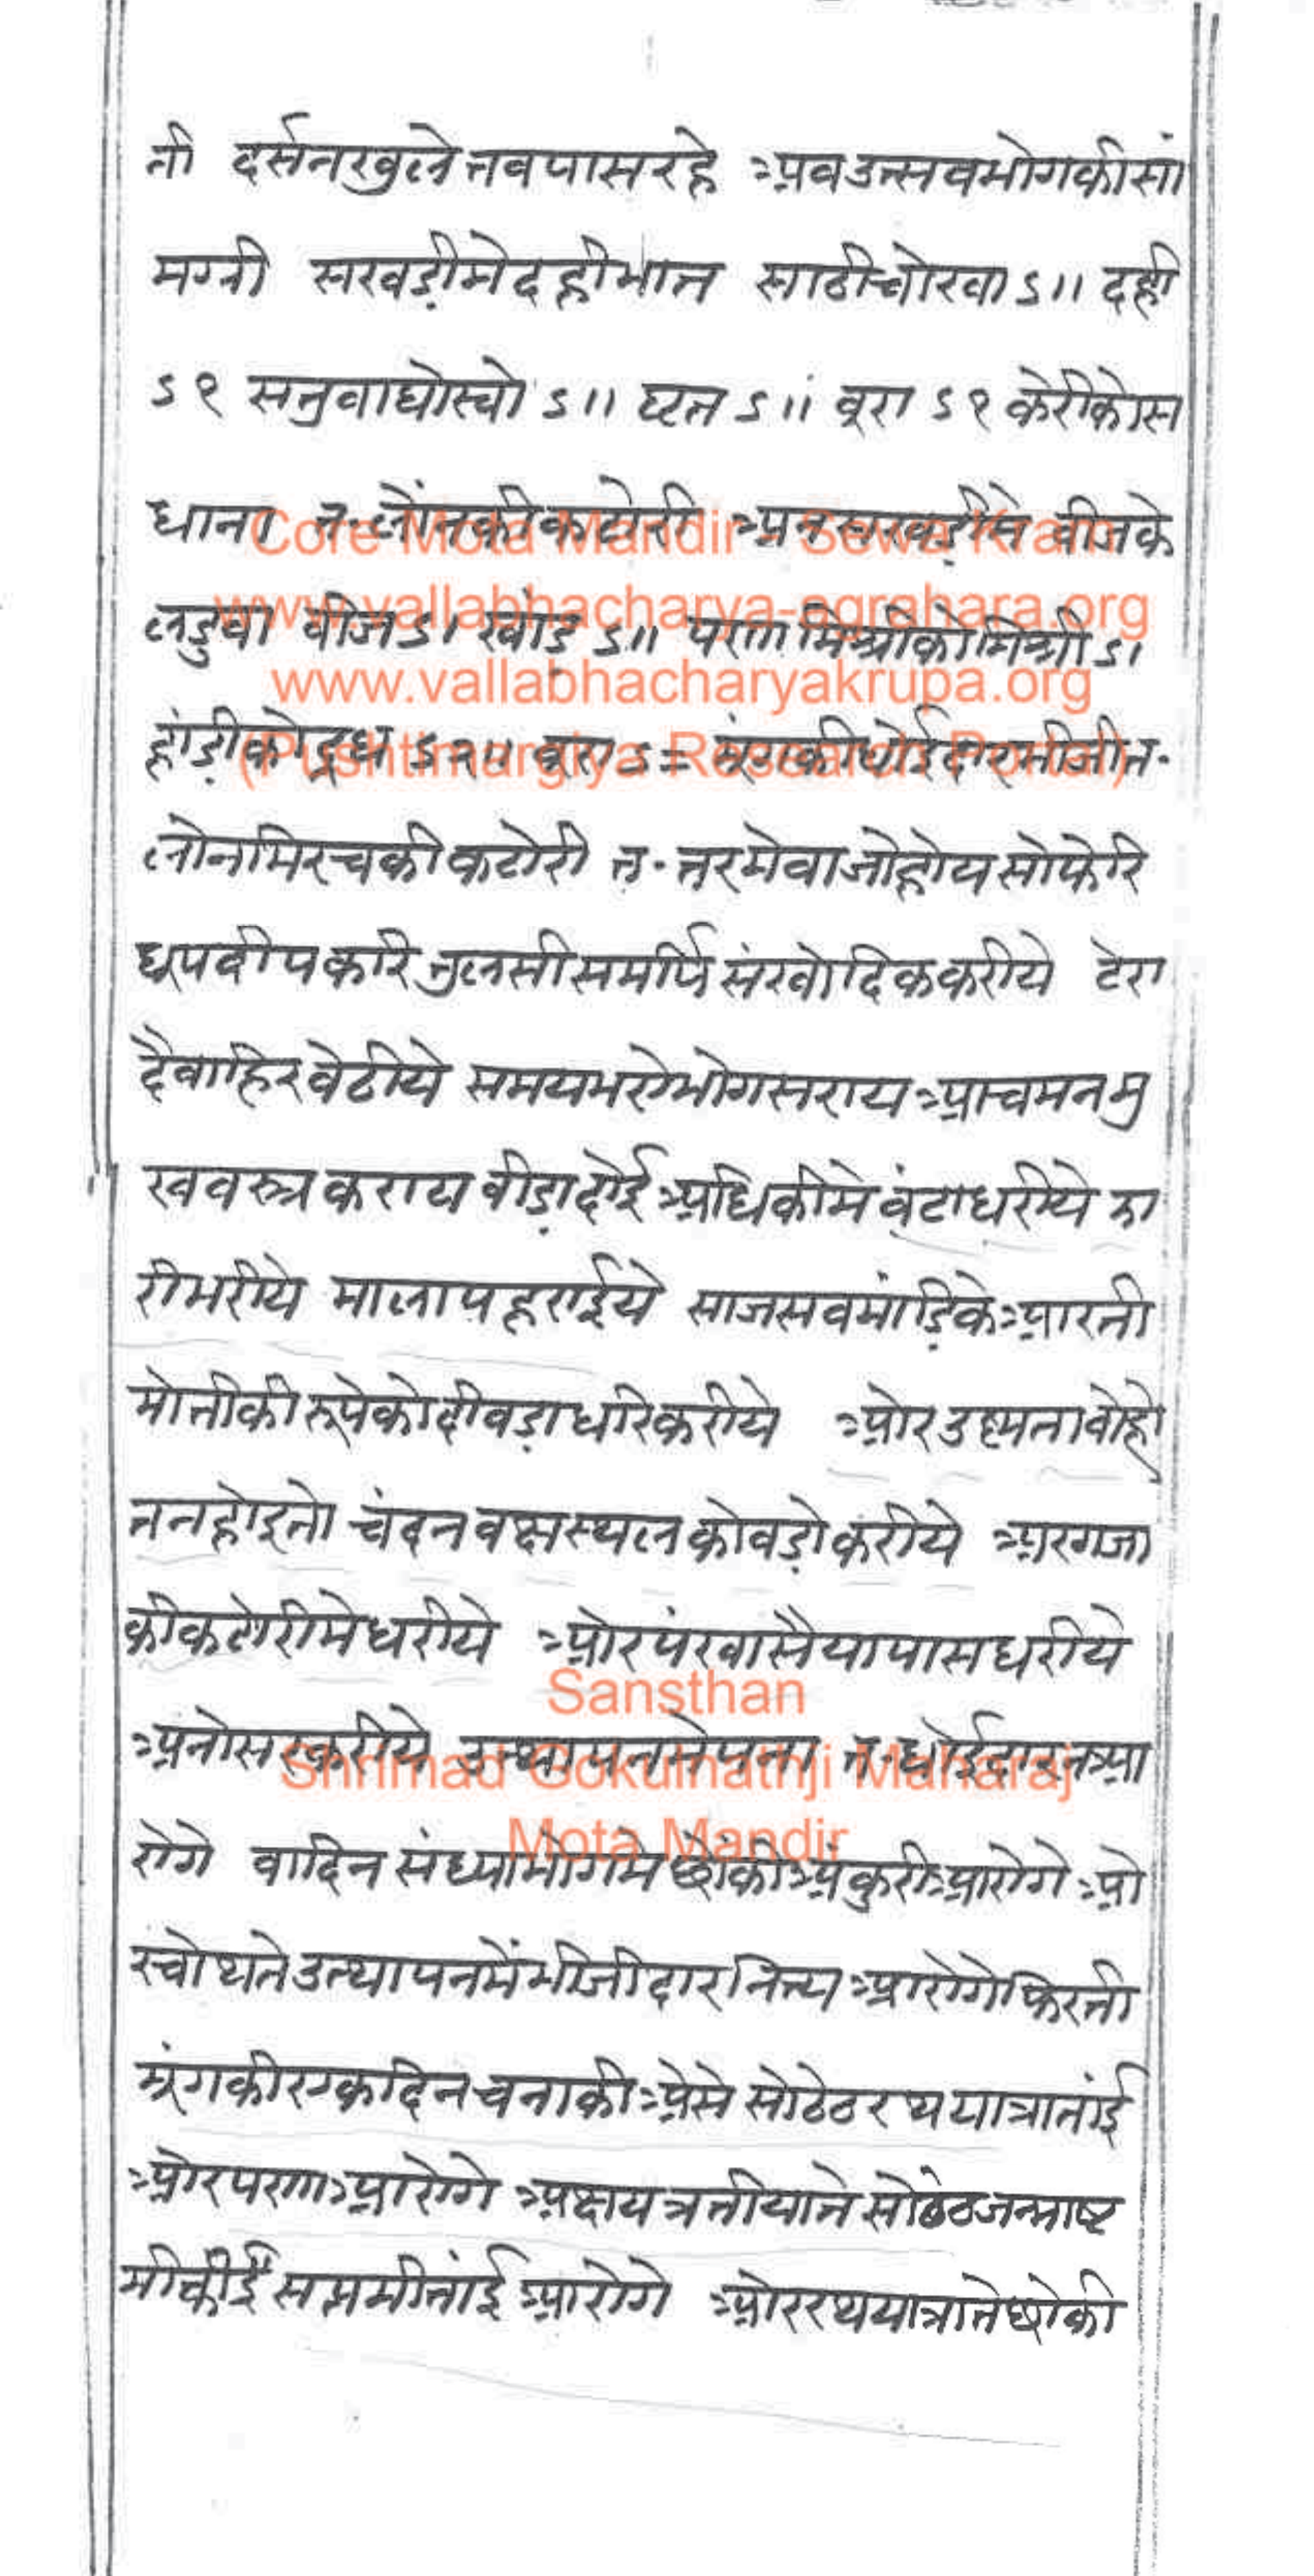 ती दर्सनखुले तबपासरहे अब उत्सवभोगकी सां
मग्री सखड़ीमे दहीभात साठीचोखा ऽ॥ दही
ऽ१ सतुवा घोरवो ऽ॥ घृत ऽ॥ बूरा ऽ१ केरीको स
धाना त. लोंनकी कटोरी अनसखड़ीमे बीजके
लडुवा बीज ऽ। खांड ऽ॥ पणा मिश्रीको मिश्री ऽ।
हांड़ीको दूध ऽ२॥ बूरा ऽ= मूंगकी धोई दार भीजी त.
लोन मिरचकी कटोरी त. तरमेवा जो होय सो फेरि
धूपदीप करि तुलसी समर्पि संखोदिक करीये टेरा
दै बाहिर बेठीये समय भए भोग सराय आचमन मु
खवस्त्र कराय बीड़ा दोई अधिकीमे बंटा धरीये झा
री भरीये माला पहराईये साज सब मांड़िके आरती
मोतीकी रूपेको दीवड़ा धरि करीये और उष्णता बोहो
त न होइ तो चंदन वक्षस्थलको बड़ो करीये अरगजा
की कटोरीमे धरीये ओर पंखा सैयापास धरीये
अनोसर करीये उत्थापनमे पना त. धोई दार न आ
रोगे वादिन संध्याभोगमे छोंकी अंकुरी आरोगे ओ
र चोथते उत्थापनमें भीजी दार नित्य आरोगे फिरती
मूंगकी एकदिन चनाकी ऐसे सो ठेठ रथयात्रा तांई
ओर पणा आरोगे अक्षय त्रतीयाते सो ठेठ जन्माष्ट
मीकीई सप्तमी तांई आरोगे ओर रथयात्राते छोकी
Core Mota Mandir - Sewa Kram
www.vallabhacharya-agrahara.org
www.vallabhacharyakrupa.org
(Pushtimargiya Research Portal)
Sansthan
Shrimad Gokulnathji Maharaj
Mota Mandir